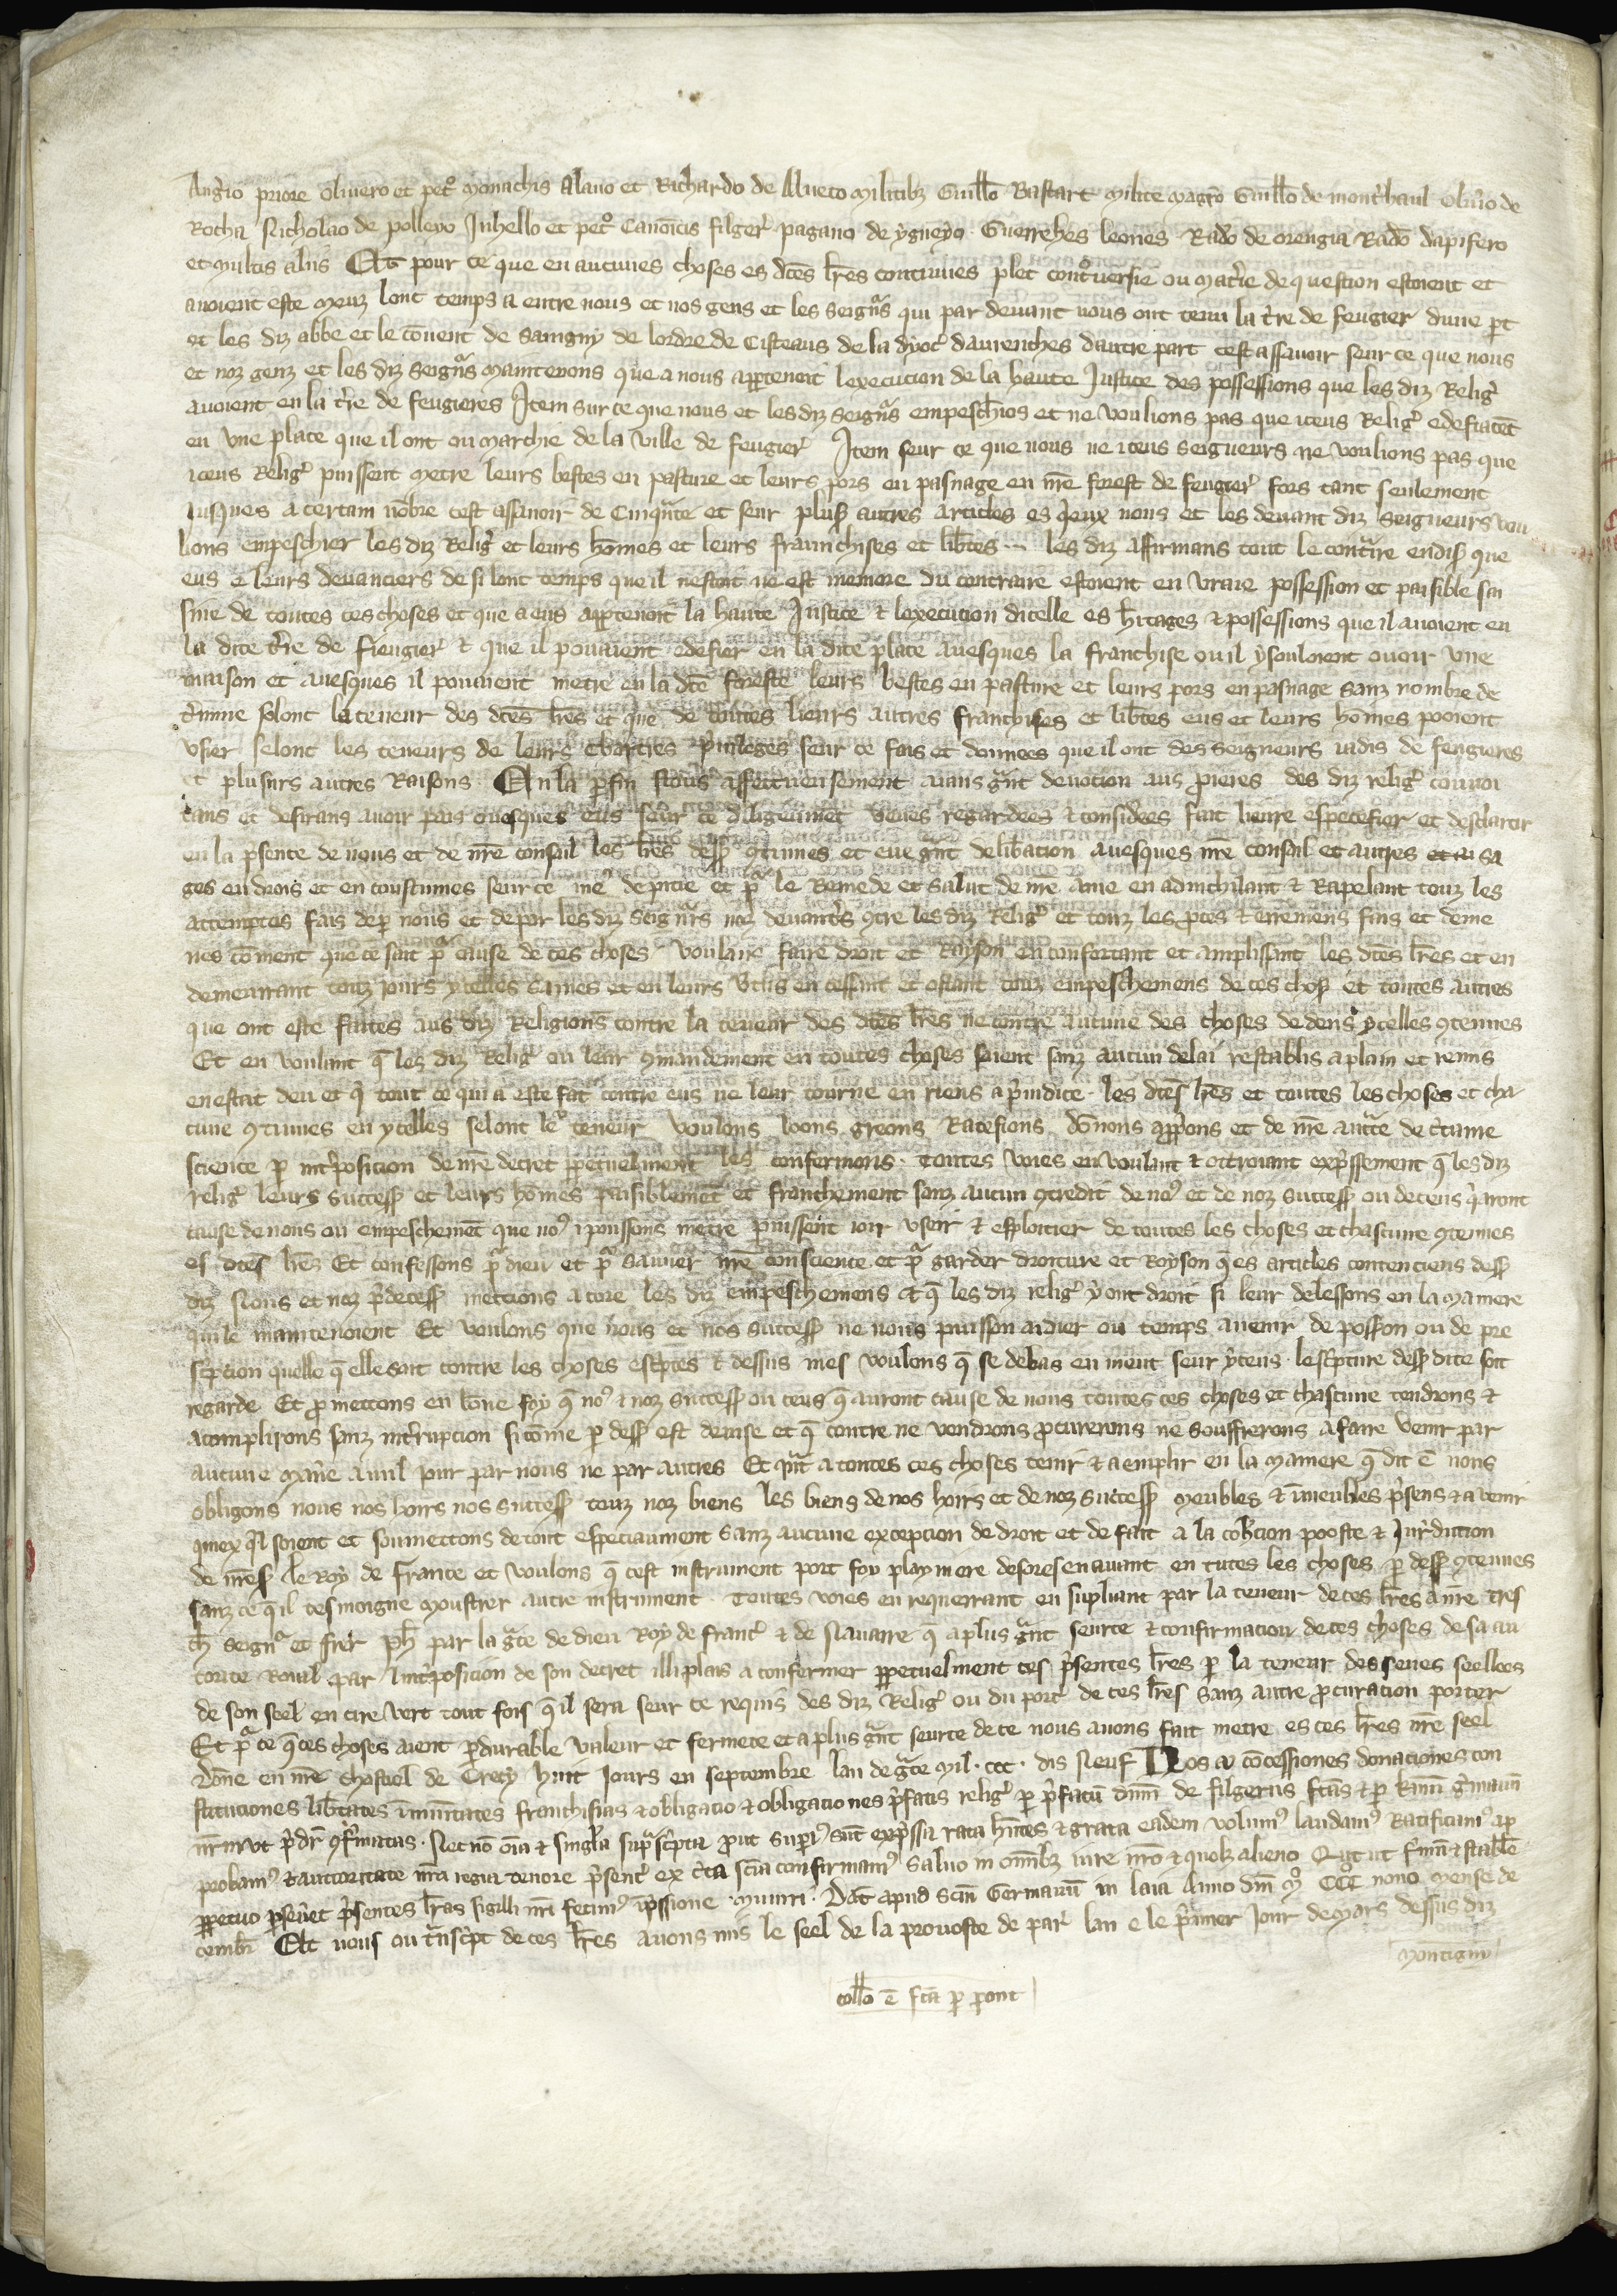 Angerio priore Olivero et petro monachis Alano et Richardo de Alneto militibz Guillo Bastart milite magro Guillo de mont'haul Oliuio de
Rocha Nicholao de polleyo Juhello et petro Canoicis filger' pagano de ygneyo Guerrehes leones Rado de orengia Rado dapifero
et multis aliis Et pour ce que en aucunes choses es dces lres contenues plet contouersie ou mater'e de question estoient et
auoient este meuz lonc temps a entre nous et nos gens et les seign's qui par deuant nous ont tenu la t're de feugier' dune part
et les diz abbe et le couent de Sauigny de lordre de Cisteaus de la dyoc' dauenches dautre part cest assauoir seur ce que nous
et noz genz et les diz seign's maintenons que a nous appartenoit lexecucion de la haute Justice des possessions que les diz Relig'
auoient en la t're de feugieres Item sur ce que nous et les diz seign's empeschios et ne voulions pas que iceus Relig' edefiacet
en vne place que il ont ou marchie de la ville de feugier' Item seur ce que nous ne iceus seigneurs ne voulions pas que
iceus Relig' puissent metre leurs bestes en pasture et leurs pors en pasnage en nre forest de feugier' fors tant seulement
iusques a certain nobre cest assauoir de Cinquate et seur plus' autres articles es q'eux nous et les deuant diz seigneurs vou
lions empeschier les diz Relig' et leurs homes et leurs fraunchises et lib'tes les diz affirmans tout le contraire endis' que
eus e leurs deuanciers de si lonc temps que il nestoit ne est memore du contraire estoient en vraie possession et paisible sai
sine de toutes ces choses et que a eus appartenoit la haute Justice et lexecucion dicelle es h'itages et possessions que il auoient en
la dite t're de fieugier' et que il pouaient edefier en la dite place auesques la franchise ou il y souloient auoir vne
maison et auesques il pouaient metre en la dce foreste leurs bestes en pasture et leurs pors en pasnage sanz nombre de
t'mine selonc la teneur des dces lres et que de toutes lieurs autres franchises et lib'tes eus et leurs homes pooient
vser selonc les teneurs de leurs chartres p'uileges seur ce fais et donnees que il ont des seigneurs iadis de feugieres
et plusurs autres Raisons En la p'fin affectueusement auans g'nt deuocion aus prieres des diz relig' conuoi
tans et desirans auoir pais auesques eus seur ce diligeument veues regardees et considerees fait lieure especefier et desclarcir
en la p'sence de nous et de nre consail les lres dess' 9tenues et eue g'nt delib'acion auesques nre consail et autres sa
ges en drois et en coustumes seur ce me' de pitie et p' le Remede et salut de nre ame en adnichilant et Rapelant touz les
attemptes fais de p' nous et de par les diz seign's noz deuanc's 9tre les diz Relig' et touz les proces et erremens fins et deme
nes coment que ce soit p' cause de ces choses voulans faire droit et Rayson en confortant et amplissant les dces lres et en
demeurant touz iours ycelles et en leurs v'tus en cessant et ostant touz empeschemens de ces chos' et toutes autres
que ont este faites aus diz Religions contre la teneur des dces lres ne contre aucune des choses de dens ycelles 9tenues
Et en voulant q les diz Relig' ou leur 9mandement en toutes choses soient sanz aucun delai restablis a plain et remis
en estat deu et q' tout ce qui a este fait contre eus ne leur tourne en riens a p'iudice les dces lres et toutes les choses et cha
cune 9tenues en ycelles selonc le' teneur voulons loons greons Ratefions donons approuons et de nre aucte de c'taine
science p' int'posicion de nre decret p'petuelment les confermons toutes voies en voulant et ottroiant exp'ssement q les diz
relig' leurs success' et leurs homes paisiblement et franchement sanz aucun 9tredit de no' et de noz success' ou de ceus q' aront
cause de nous ou empeschemet que no' i puissons metre puissent ioir vseir et esploitier de toutes les choses et chascune 9tenues
es dces lres Et confessons p' dieu et p' sauuer nre conscience et p' garder droiture et Royson q es articles contenciens dess'
diz Nous et noz p'decess' mections a tore les diz empeschemens et q les diz relig' y ont droit si leur delessons en la maniere
quil le maintenoient Et voulons que nous et nos success' ne nous puisson aidier ou temps auenir de poss'on ou de pre
sc'pcion quelle q elle soit contre les choses esc'ptes et dessus mes voulons q se debas en muet seur yceus lesc'pture dess' dite soit
regarde Et prometons en bone foy q no' et noz success' ou ceus q auront cause de nous toutes ces choses et chascune tendrons et
acomplirons sanz int'rupcion si come p' dess' est deuise et q contre ne vendrons procurerons ne souffrerons a faire venir par
aucune man'e a nul iour par nous ne par autres Et qnt a toutes ces choses tenir et aemplir en la maniere q dit e nous
obligons nous nos hoirs nos success' touz noz biens les biens de nos hoirs et de noz success' meubles et imeubles p'sens et a venir
quiex q'l soient et soumettons de tout especiaument sanz aucune excepcion de droit et de fait a la coh'cion pooste et Jur'diction
de mes' le Roy de france et voulons q cest instrument port foy playniere desores en auant en tutes les choses p' dess' 9tenues
sanz ce q il tesmoigne moustrer autre instrument Toutes voies en requerrant en supliant par la teneur de ces lres a nre tres
ch' seign' et frer' ph' par la g'ce de dieu Roy de franc' et de Nauarre q a plus g'nt seurte et confirmacion de ces choses de sa au
torite Roial par lint'posicion de son decret illi plais a confermer p'petuelment ces p'sentes lres p' la teneur des seues seellees
de son seel en cire vert tout fois q il sera seur ce requis des diz Relig' ou du port' de ces lres sanz autre procuracion porter
Et p' ce q ces choses aient p'durable valeur et fermete et a plus g'nt seurte de ce nous auons fait metre es ces lres nre seel
Done en nre chasteel de Crecy huit Jours en septembre lan de g'ce mil ccc dis Neuf Nos a' concessiones donaciones con
stituciones lib'tates imunitates franchisias et obligacio et obligaciones p'fatis relig' p' p'fatu dnm de filgeriis fctas et p' kmu g'manu
nrm vt p'dr 9f'matas Nec no oia et sing'la sup'sc'pta prout sup'i' sut exp'ssa rata h'ntes et grata eadem volum' laudam' Ratificam' ap
probam' et auctoritate nra regia tenore p'senc' ex c'ta scia confirmam' Saluo in omibz iure nro et quolz alieno Qd ut f'mu et stabile
p'petuo p'seu'et p'sentes lras sigilli nri fecim' ip'ssione muniri Dat apud Scm Germanu in laia Anno dni M° CCC° nono mense de
cembr' Et nous ou t'nsc'pt de ces lres auons mis le seel de la prouoste de par' lan e le p'imier Jour de mars dessus diz
montigny
coll'o e fca p' p'ont